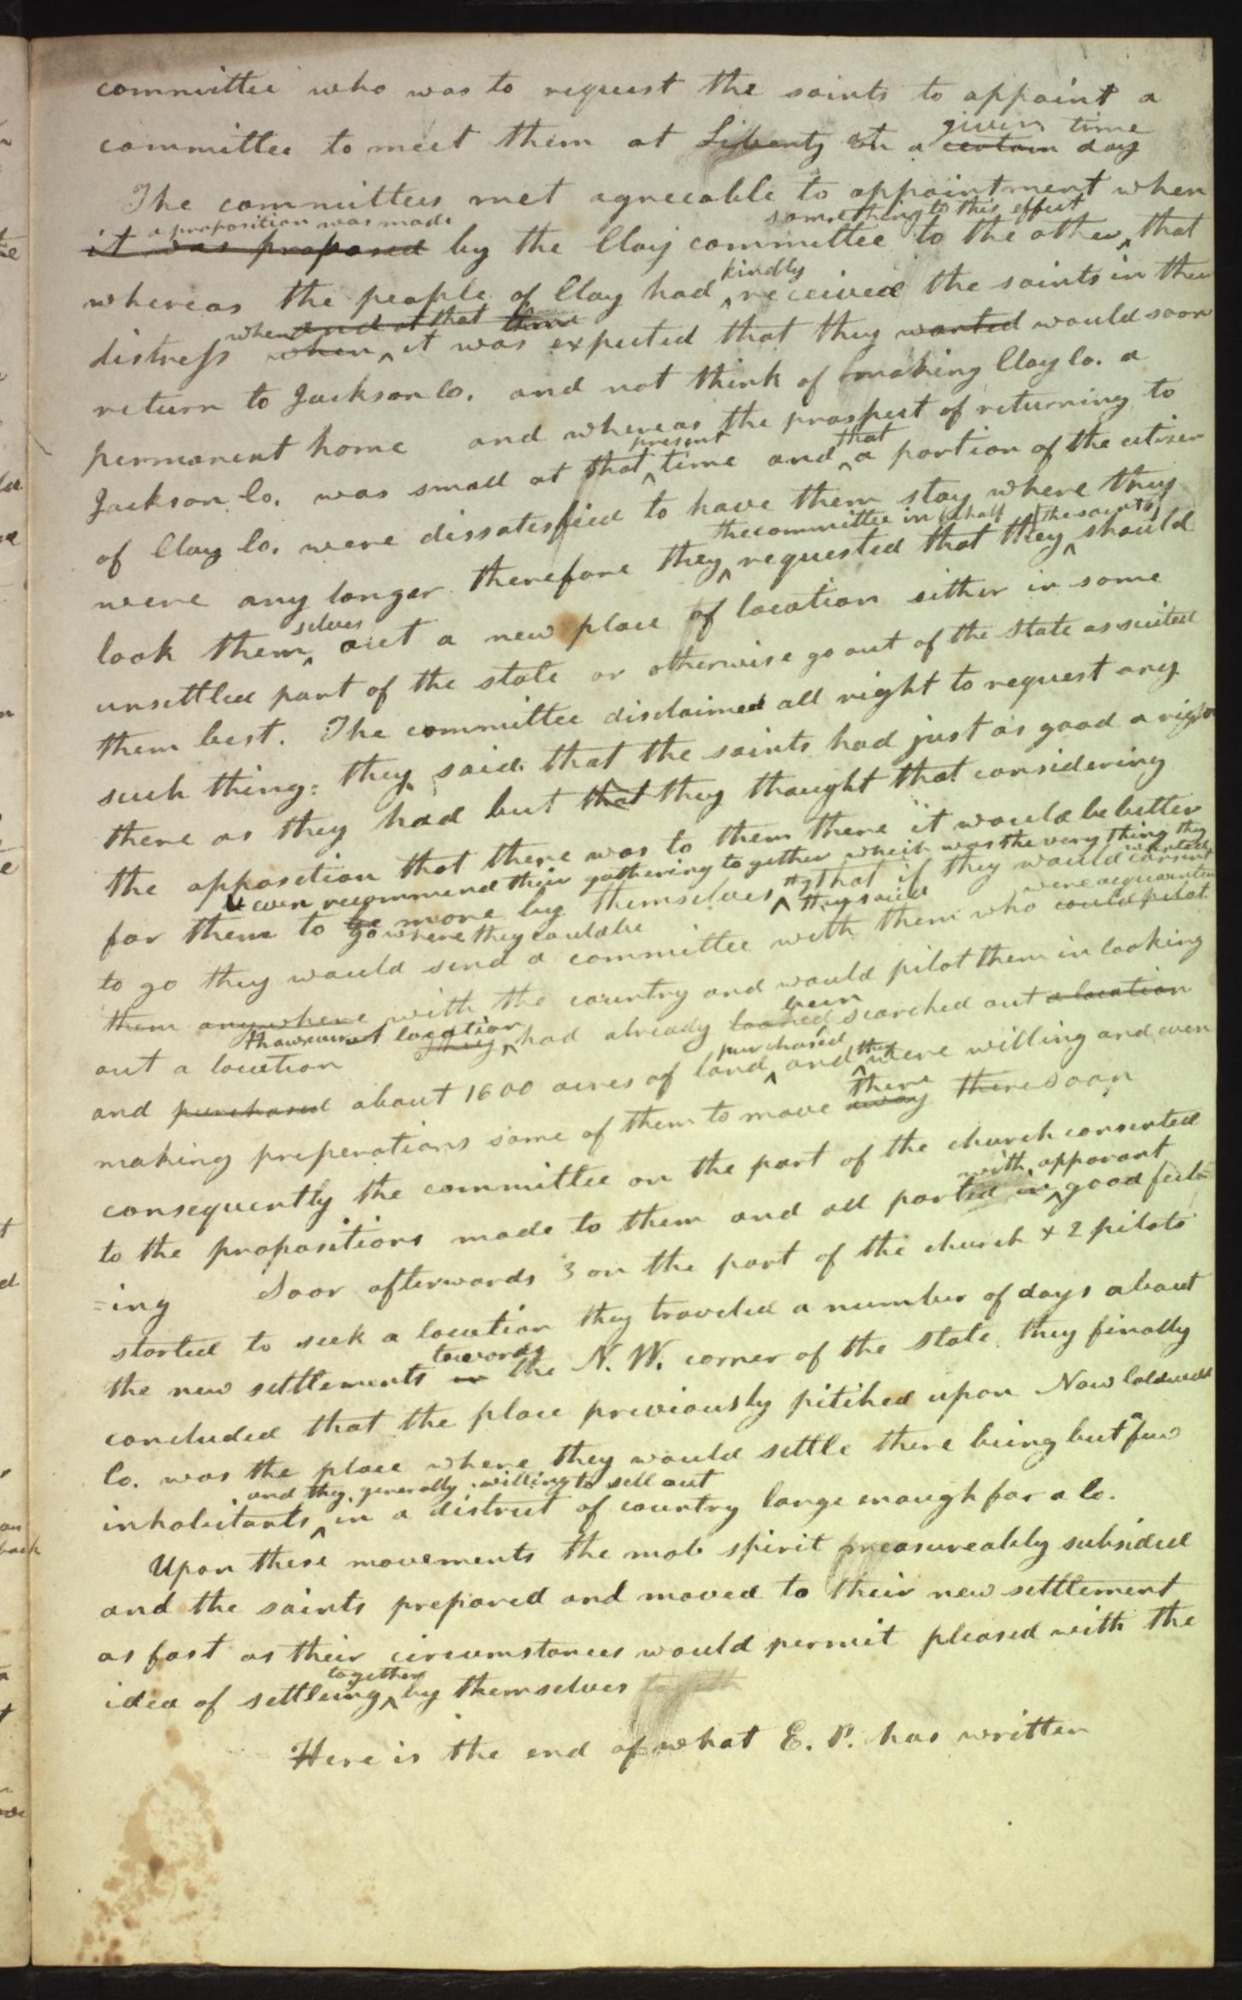 committee who was to request the saints to appoint a
given time
committee to meet them at Liberty at a certain day
The committees met agreeable to appointment when
a proposition was made something to this effect
it was proposed by the Clay committee to the other, that
kindly
whereas the people of Clay had received the saints in their
when and at that time
distress when it was expected that they wanted would soon
return to Jackson Co. and not think of making Clay Co. a
permanent home and whereas the prospect of returning to
present that
Jackson Co. was small at that time and a portion of the citizen
of Clay Co. were dissatisfied to have them stay where they
the committee in behalf the saints
were any longer therefore they requested that they should
selves
look them out a new place of location either in some
unsettled part of the state or otherwise go out of the State as suited
them best. The committee disclaimed all right to request any
such thing: they said that the saints had just as good a right
there as they had but that they thought that considering
the opposition that there was to them there it would be better
& even recommend their gathering together which was the very thing they wanted
for them to be more by themselves that if they would consent
go where they could be they said were acquainted
to go they would send a committee with them who could pilot
them anywhere with the country and would pilot them in looking
location been
out a location They had already looked searched out a location
purchased they
and purchased about 1600 acres of land and were willing and even
there
making preperations some of them to move away there soon
consequently the committee on the part of the church consented
with apparant
to the propositions made to them and all parted in good feel=
=ing Soon afterwards 3 on the part of the church & 2 pilots
started to seek a location they traveled a number of days about
towards
the new settlements in the N. W. corner of the state. they finally
concluded that the place previously pitched upon Now Caldwell
a
Co. was the place where they would settle there being but few
and they generally willing to sell out
inhabitants in a district of country large enough for a Co.
Upon these movements the mob spirit measureably subsided
and the saints prepared and moved to their new settlement
as fast as their circumstances would permit pleased with the
together
idea of settleing by themselves
Here is the end of what E. P. has written